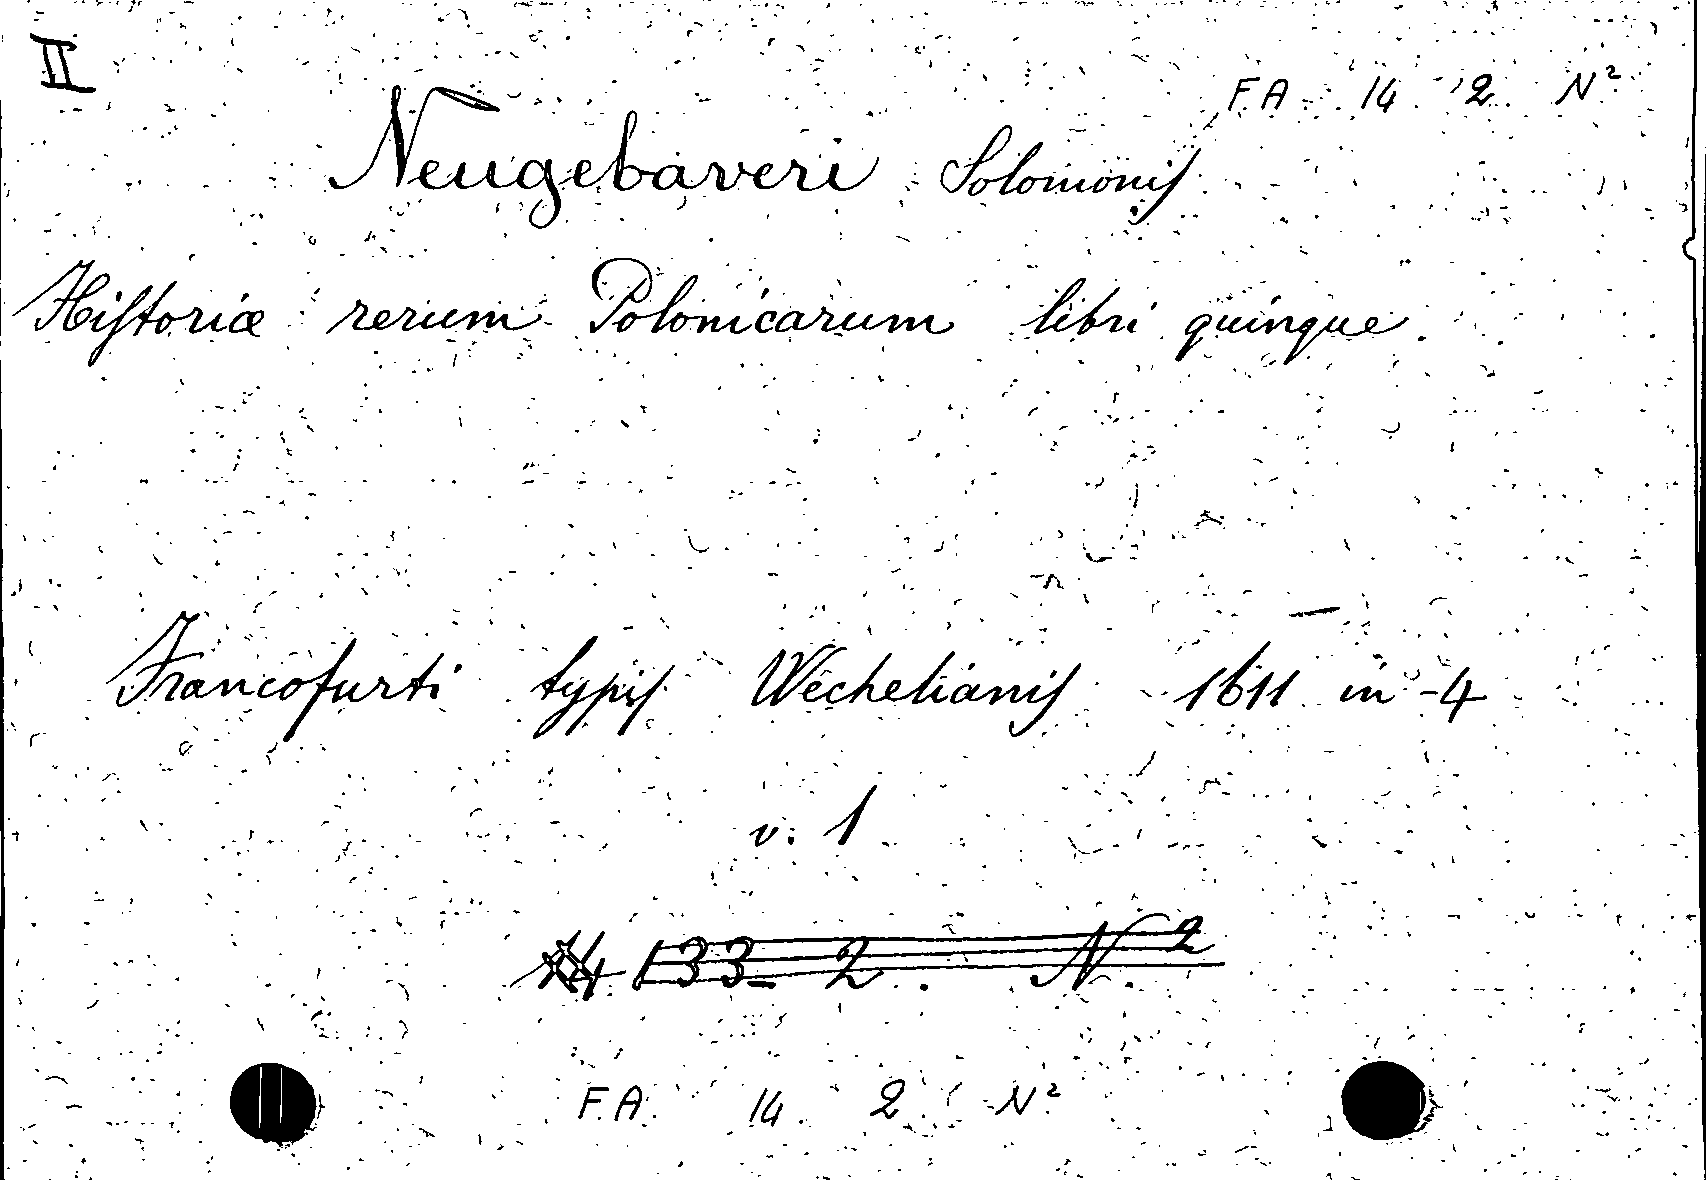 II
F. A. 14 2 N²
Neugebaveri Solomonis
Historiæ rerum Polonicarum libri quinque.
Francofurti typis Wechelianis 1611 in-4
v. 1
133 2. N²
F. A. 14 2 N²